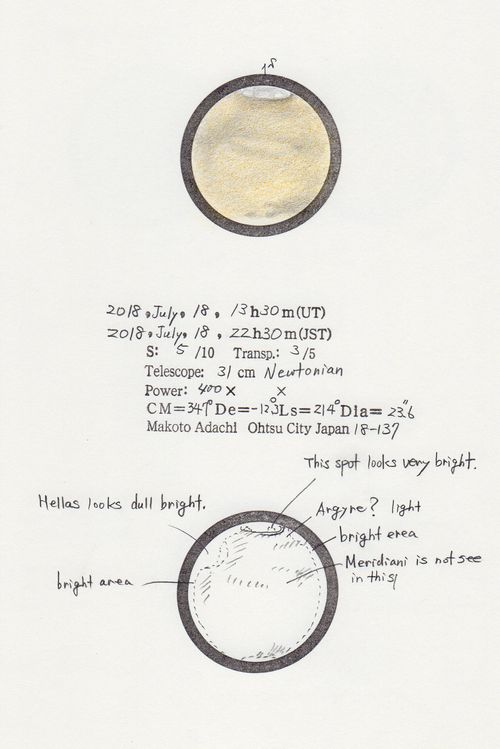 2018, July, 18, 13h30m(UT)
2018, July, 18, 22h30m(JST)
S: 5 /10 Transp.: 3/5
Telescope: 31 cm Newtonian
Power: 400× ×
CM=347°De=-12.3Ls=214°Dia=23".6
Makoto Adachi Ohtsu City Japan 18-137
This spot looks very bright.
Hellas looks dull bright.
Argyre? light
bright erea
Meridiani is not see
in this
bright area